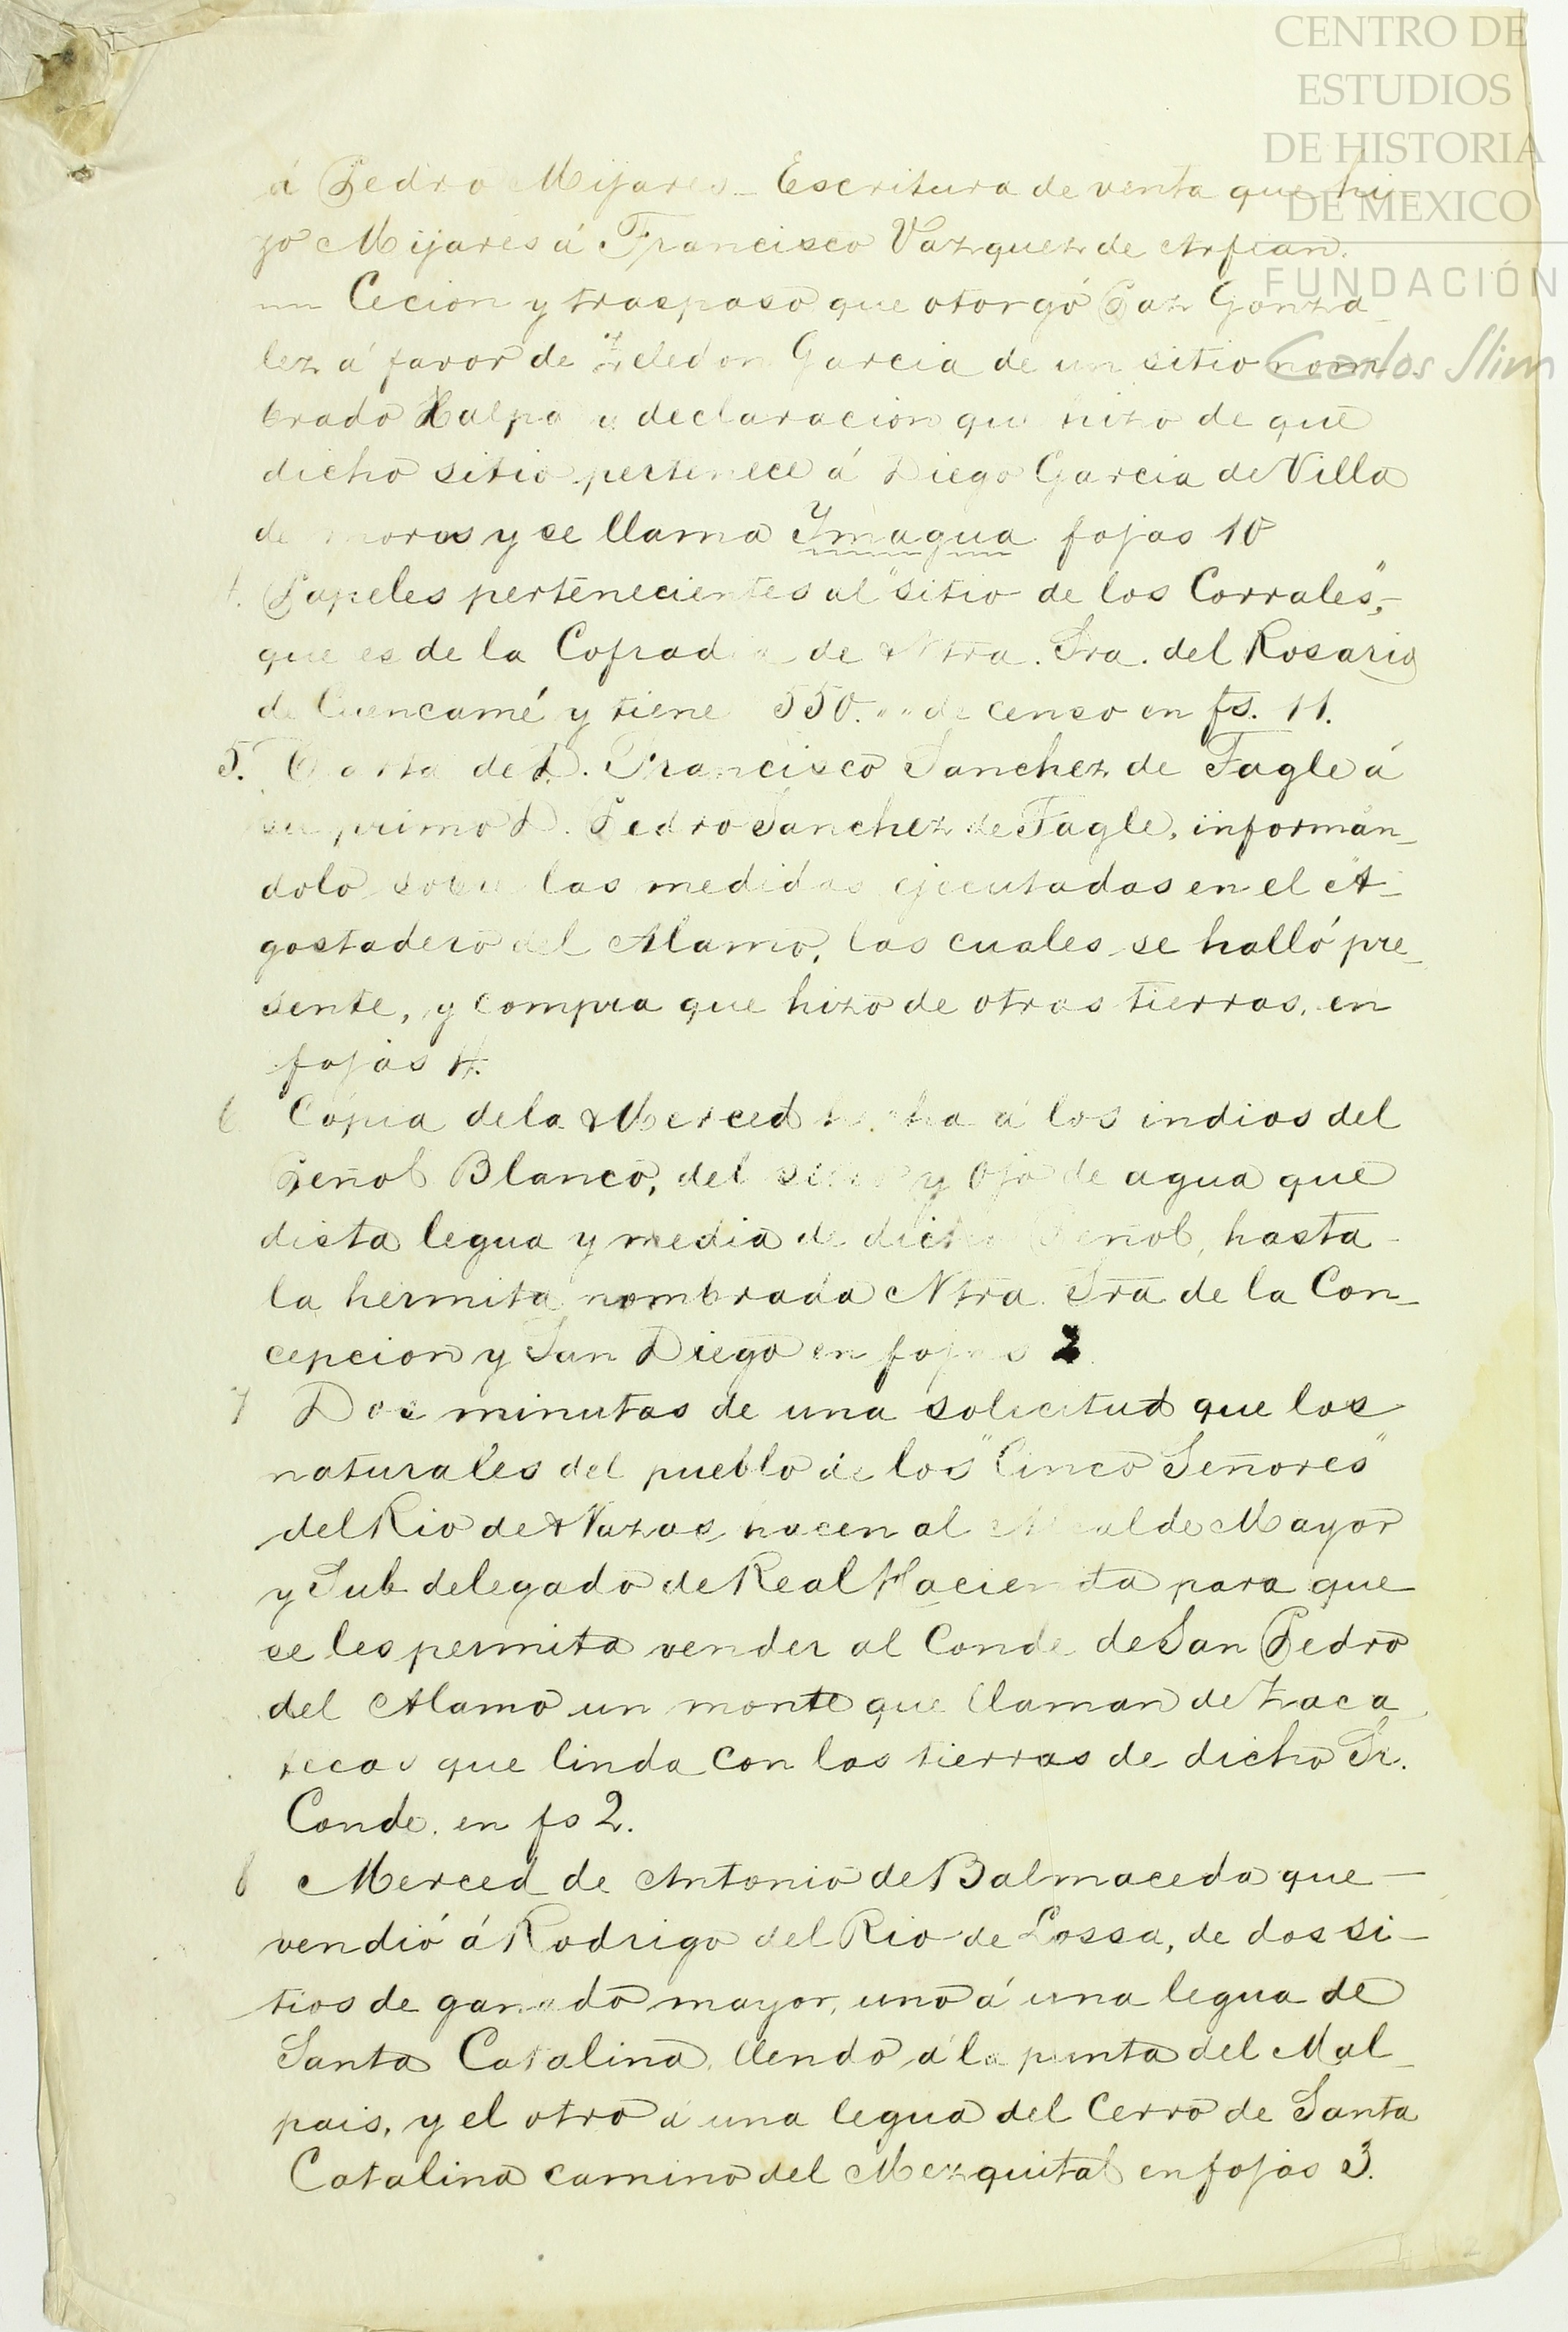 CENTRO DE
ESTUDIOS
DE HISTORIA
DE MEXICO
FUNDACIÓN
Carlos Slim
á Pedro Mijares_ Escritura de venta que hi
zo Mijares á Francisco Vazquez de
Cecion y traspaso que otorgó Gonza_
lez á favor de Zeledon Garcia de un sitio nom
brado Xalpa y declaracion que hizo de que
dicho sitio pertenece á Diego Garcia de Villa
de y se llama Ymagua fojas 10
4. Papeles pertenecientes al "sitio de los Corrales",-
que es de la Cofradia de Ntra. Sra. del Rosario
de Cuencamé y tiene 550. de censo en fs. 11.
5. Carta de D. Francisco Sanchez de Tagle á
su primo D. Pedro Sanchez de Tagle, informán_
dolo sobre las medidas ejecutadas en el A_
gostadero del Alamo, las cuales se halló pre_
sente, y compra que hizo de otras tierras, en
fojas 4.
6 Copia de la Merced hecha á los indios del
Peñol Blanco, del sitio y Ojo de agua que
dista legua y media de dicho Peñol, hasta -
la hermita nombrada Ntra. Sra de la Con_
cepcion y San Diego en fojas 2
7 Dos minutas de una solicitud que los
naturales del pueblo de los "Cinco Señores"
del Rio de Nazas hacen al Alcalde Mayor
y Sub delegado de Real Hacienda para que
se les permita vender al Conde de San Pedro
del Alamo un monte que llaman de Zaca
tecas que linda con las tierras de dicho Sr.
Conde. en fs 2.
8 Merced de Antonio de Balmaceda que -
vendió á Rodrigo del Rio de Lossa, de dos si-
tios de ganado mayor, uno á una legua de
Santa Catalina, llendo á la punta del Mal_
pais, y el otro á una legua del Cerro de Santa
Catalina camino del Mezquital en fojas 3.